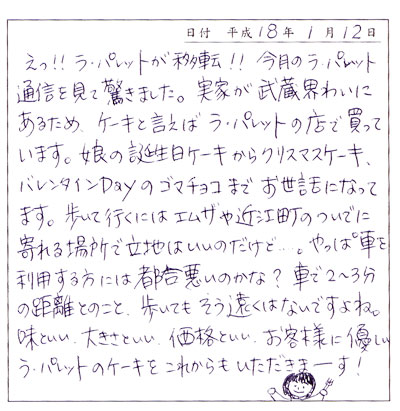 日付 平成18年1月12日
えっ!! ラ・パレットが移転!! 今月のラ・パレット
通信を見て驚きました。実家が武蔵界わいに
あるため、ケーキと言えばラ・パレットの店で買って
います。娘の誕生日ケーキからクリスマスケーキ、
バレンタインDayのゴマチョコまでお世話になって
ます。歩いて行くにはエムザや近江町のついでに
寄れる場所で立地はいいのだけど…。やっぱ車を
利用する方には都合悪いのかな?車で2〜3分
の距離とのこと、歩いてもそう遠くはないですよね。
味といい、大きさといい、価格といい、お客様に優しい
ラ・パレットのケーキをこれからもいただきまーす!